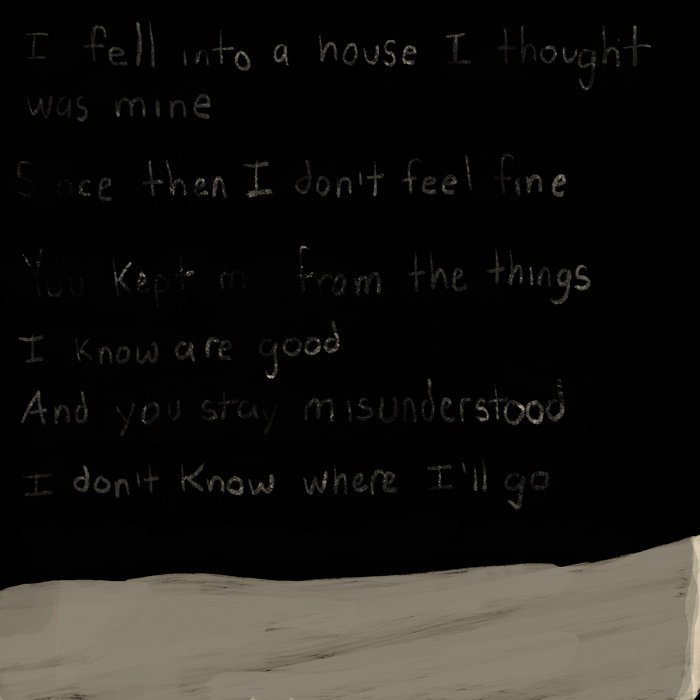 I fell into a house I thought
was mine
Since then I don't feel fine
You kept me from the things
I know are good
And you stay misunderstood
I don't know where I'll go